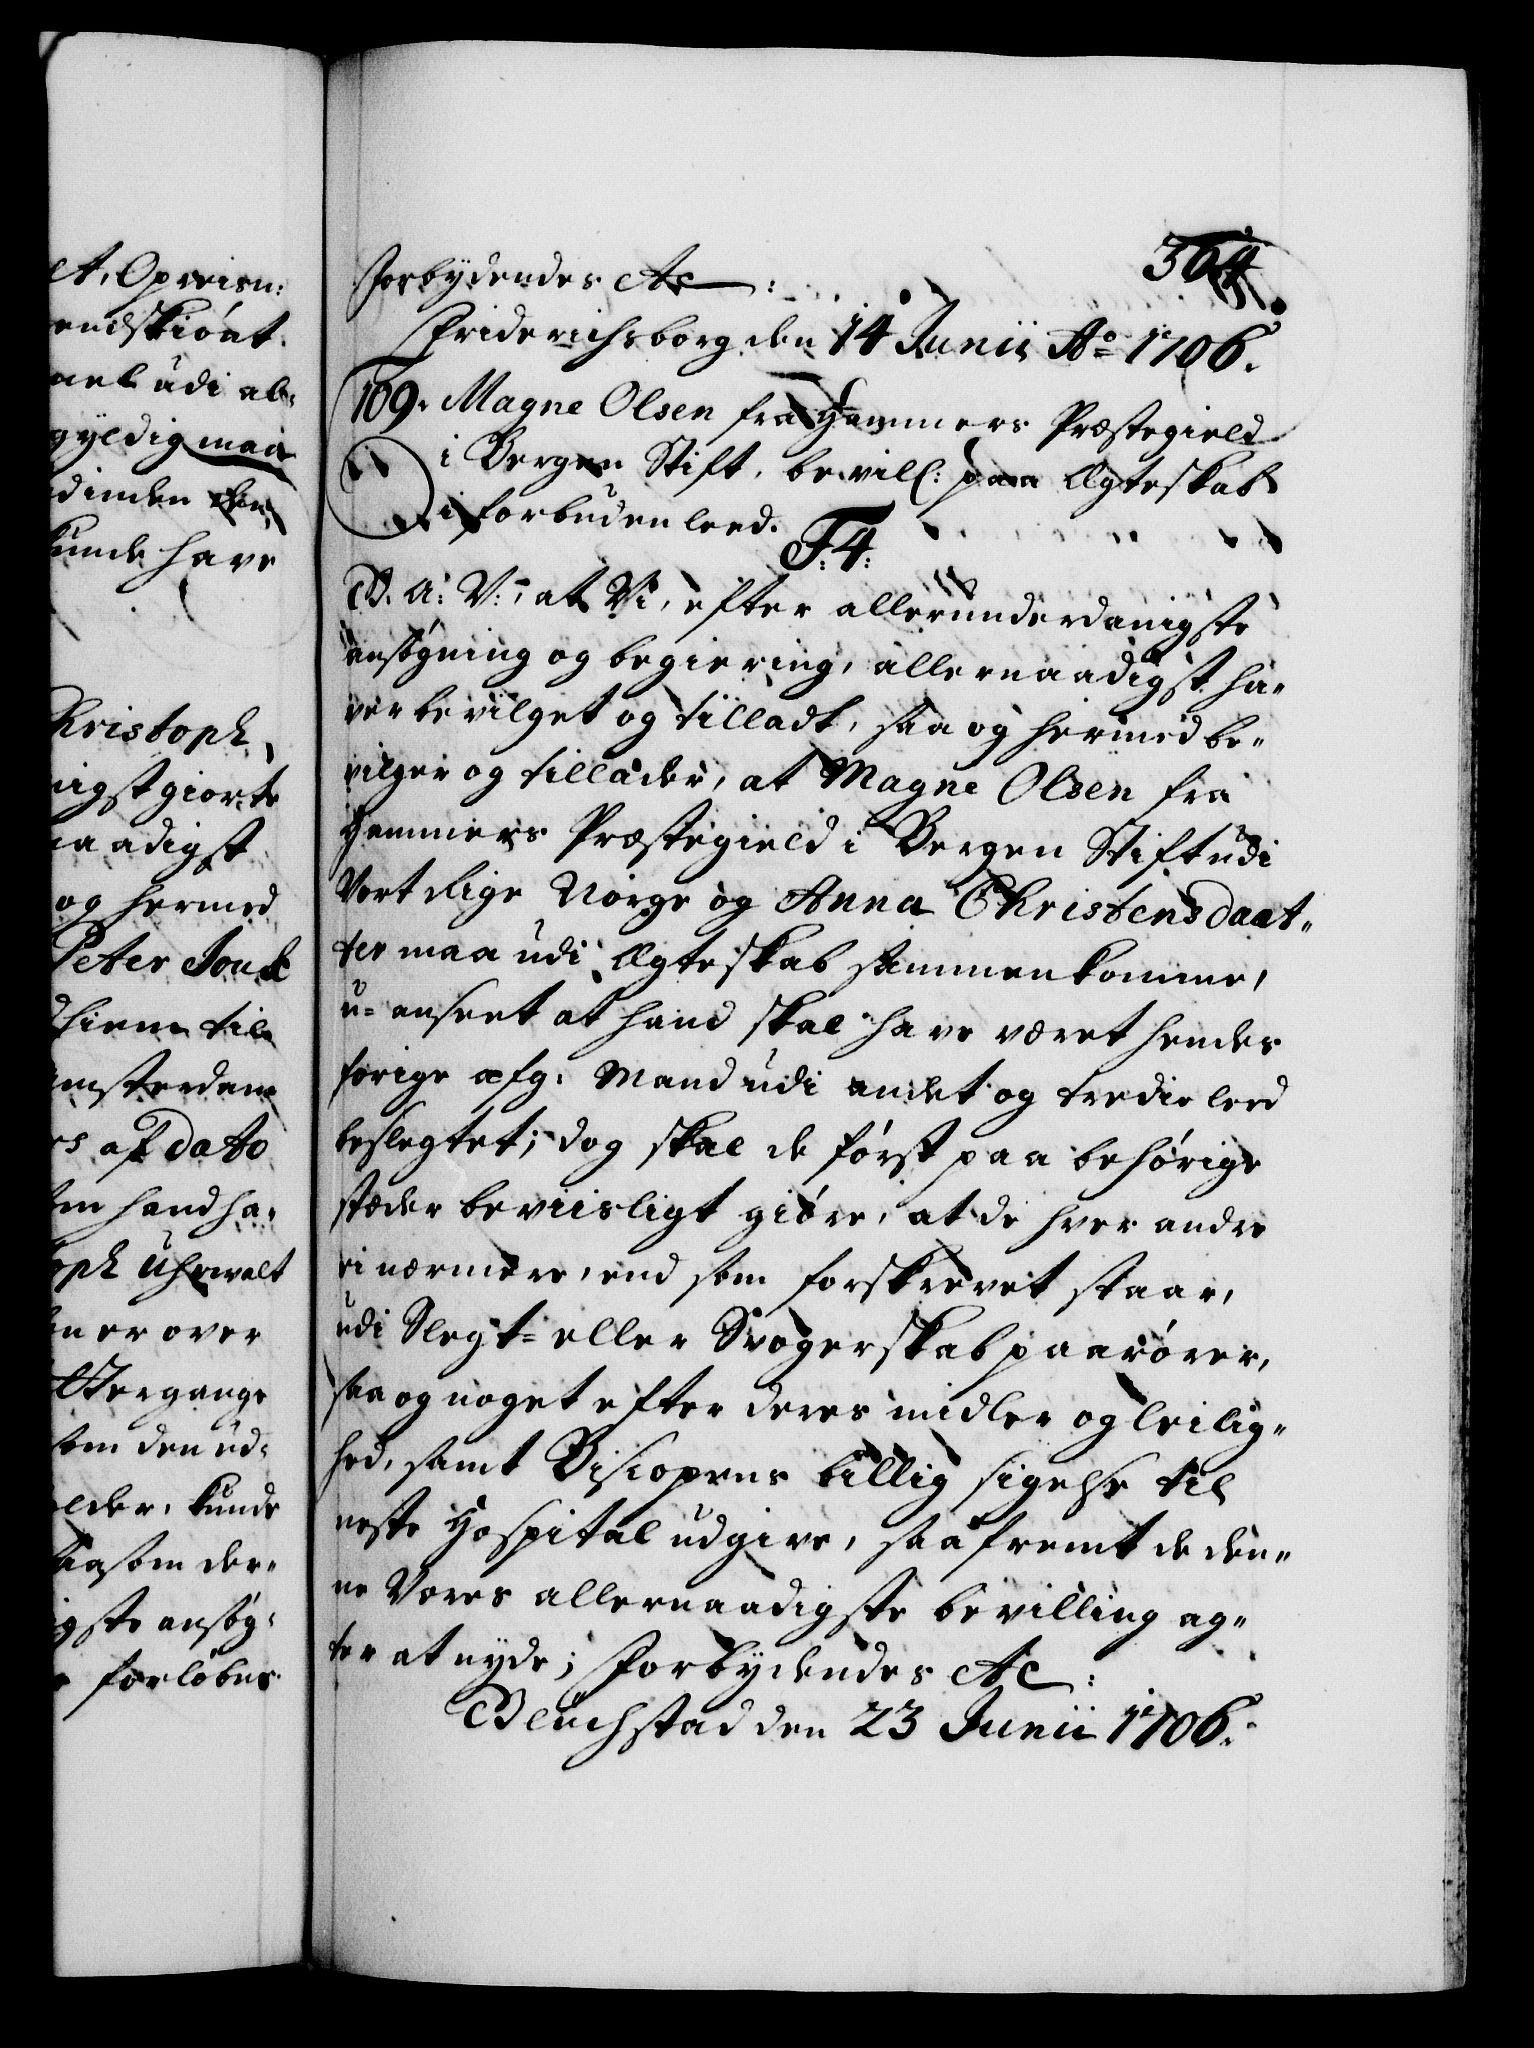 A, Opreisn:
endskiönt
ael udi al=
gyldig maa
dinden
kunde have
Kristoph
nigst giorte
naadigst
og hermed
Peter Jouck
dhiem til
Amsterdam
rs af dato
em hand ha=
oph Uhrwalt
en er over
Wergange
som den ud=
elder, kunde
saasom der=
igste ansög=
forlöbne
364
Forbydendes Ac:
Friderichsborg den 14 Junii Ao 1706.
109. Magne Olsen fra Hammers Præstegield
i Bergen Stift, bevill: paa Ægteskab
i forbuden leed.
F:4:
G. A: V:, at Vi, efter allerunderdanigste
ansögning og begiering, allernaadigst ha=
ver bevilget og tilladt, saa og hermed be=
vilger og tillader, at Magne Olsen fra
Hammers Præstegield i Bergen Stift udi
Vort Rige Norge og Anna Christensdaat=
ter maa udi Ægteskab sammenkomme,
u=anseet at hand skal have været hendes
forige afg: Mand udi andet og tredie leed
beslegtet; dog skal de först paa behörige
stæder beviisligt giöre, at de hver andre
ei nærmere, end som forskrevet staar,
udi Slegt= eller Svogerskab paarörer,
saa og noget efter deres midler og leilig=
hed, samt Biscopens billig sigelse til
neste Hospital udgive, saafremt de den=
ne Vores allernaadigste bevilling ag=
ter at nyde; Forbydendes Ac:
Glückstad den 23 Junii 1706.